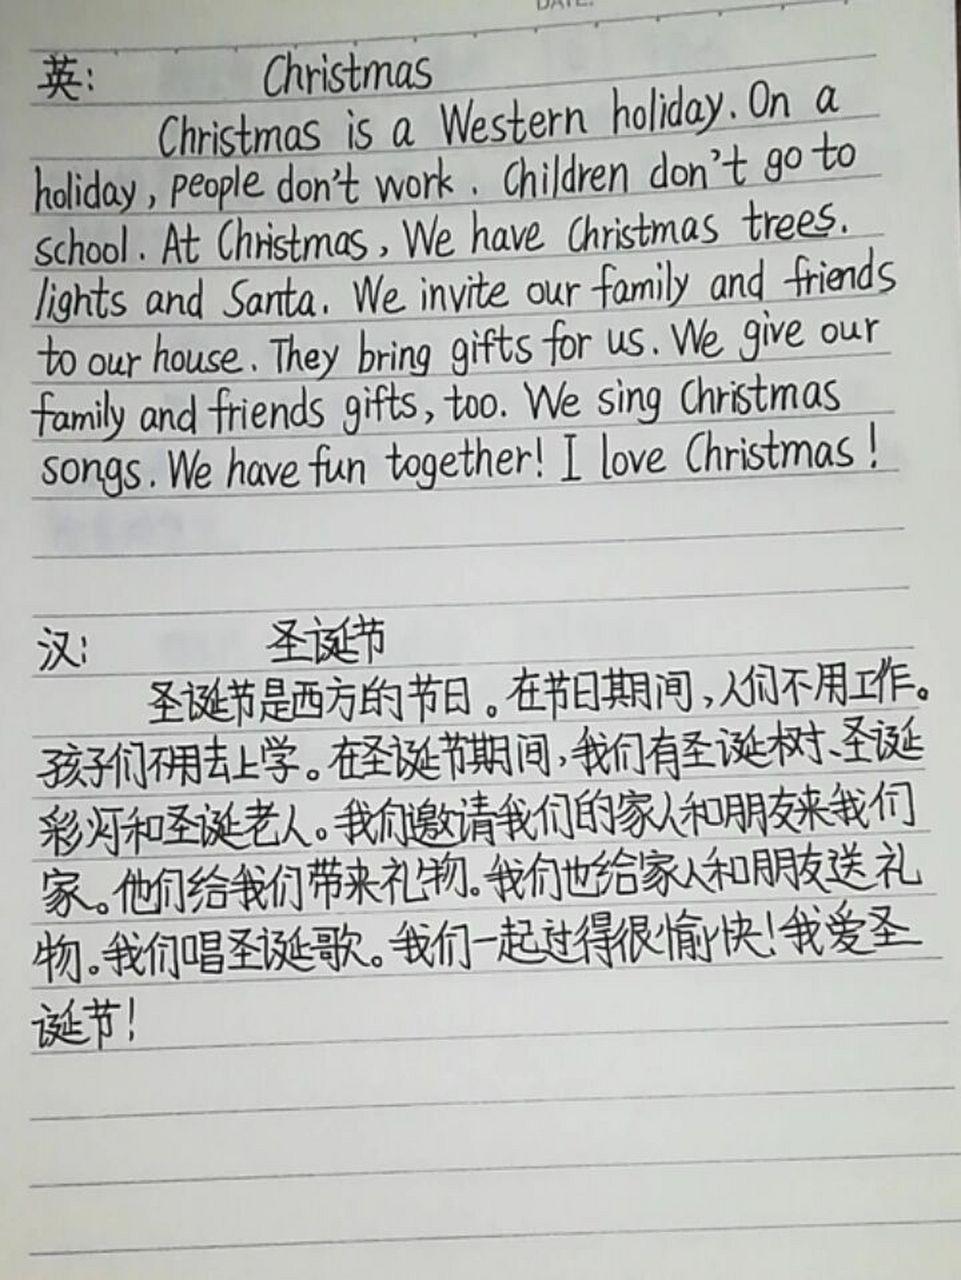 DATE:
英: Christmas
Christmas is a Western holiday. On a
holiday, people don't work. Children don't go to
school. At Christmas, We have Christmas trees.
lights and Santa. We invite our family and friends
to our house. They bring gifts for us. We give our
family and friends gifts, too. We sing Christmas
songs. We have fun together! I love Christmas!
汉: 圣诞节
圣诞节是西方的节日。在节日期间,人们不用工作。
孩子们不用去上学。在圣诞节期间,我们有圣诞树、圣诞
彩灯和圣诞老人。我们邀请我们的家人和朋友来我们
家。他们给我们带来礼物。我们也给家人和朋友送礼
物。我们唱圣诞歌。我们一起过得很愉快!我爱圣
诞节!